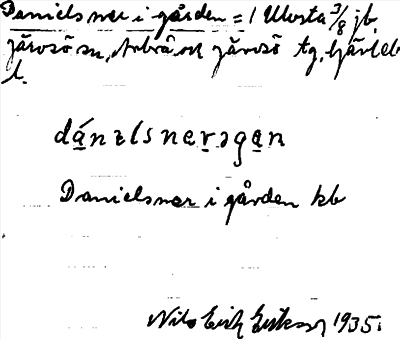 Danielsner i gården = 1 Ulvsta 3/8 jb,
Järvsö sn, Arbrå och Järvsö tg, Gävleb
l.
dánəlsnerəgan
Danielsner i gården kb
Nils Erik Eriksson 1935.